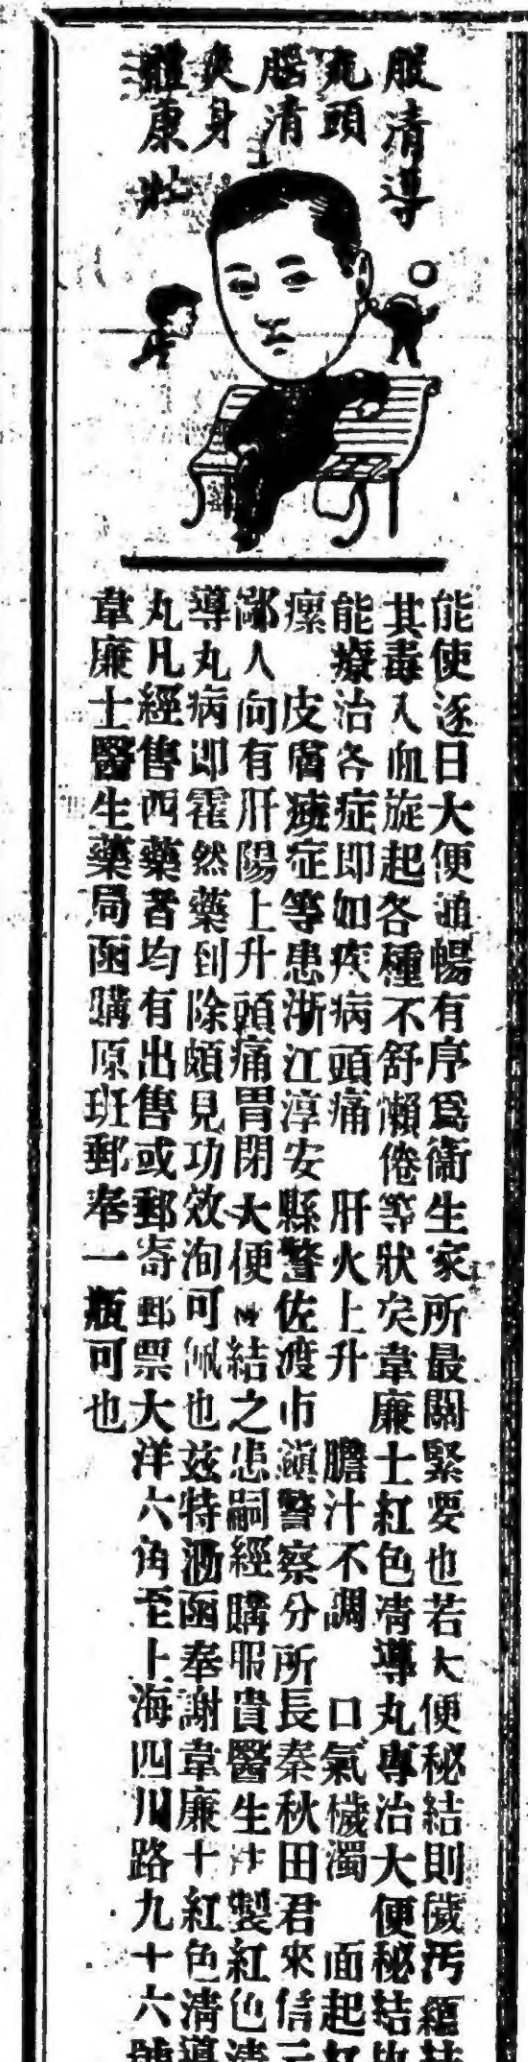 服清導
丸頭
腦清
爽身
體康壯
能使逐日大便通暢有序為衞生家所最關緊要也若大便秘結則穢汚蘊
其毒入血旋起各種不舒懶倦等狀矣韋廉士紅色凊導丸專治大便秘結
能療治各症即如疾病頭痛 肝火上升 膽汁不調 口氣穢濁 面起
瘰 皮膚症等患浙江淳安縣警佐渡市鎮警察分所長秦秋田君來信云
鄙人向有肝陽上升頭痛胃閉大便結之患嗣經購服貴醫生製紅色清
導丸病即霍然藥到除頗見功效洵可佩也茲特泐函奉謝韋廉士紅色清導
丸凡經售西藥者均有出售或郵寄郵票大洋六角至上海四川路九十六號
韋廉士醫生藥局函購原班郵奉一瓶可也